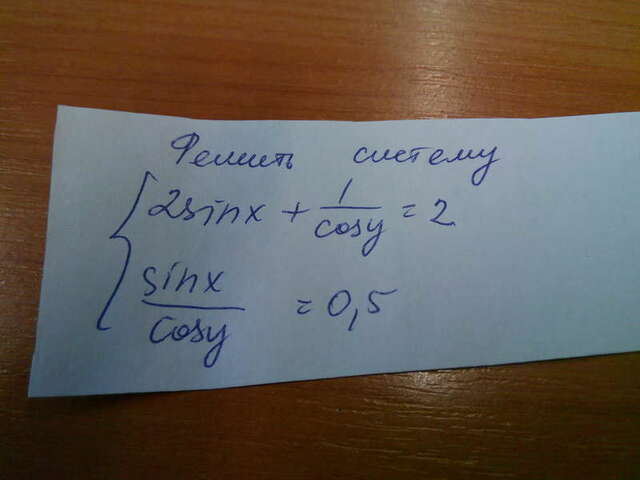 Решить систему
2sinx + 1/cosy = 2
sinx/cosy = 0,5